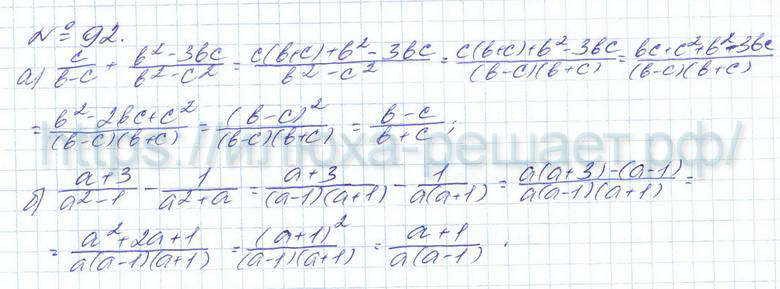 № 92.
а) c/(b-c) + (b²-3bc)/(b²-c²) = (c(b+c)+b²-3bc)/(b²-c²) = (c(b+c)+b²-3bc)/((b-c)(b+c)) = (bc+c²+b²-3bc)/((b-c)(b+c))
= (b²-2bc+c²)/((b-c)(b+c)) = (b-c)²/((b-c)(b+c)) = (b-c)/(b+c);
https://илюха-решает.рф/
б) (a+3)/(a²-1) - 1/(a²+a) = (a+3)/((a-1)(a+1)) - 1/(a(a+1)) = (a(a+3)-(a-1))/(a(a-1)(a+1)) =
= (a²+2a+1)/(a(a-1)(a+1)) = (a+1)²/((a-1)(a+1)) = (a+1)/(a(a-1)).